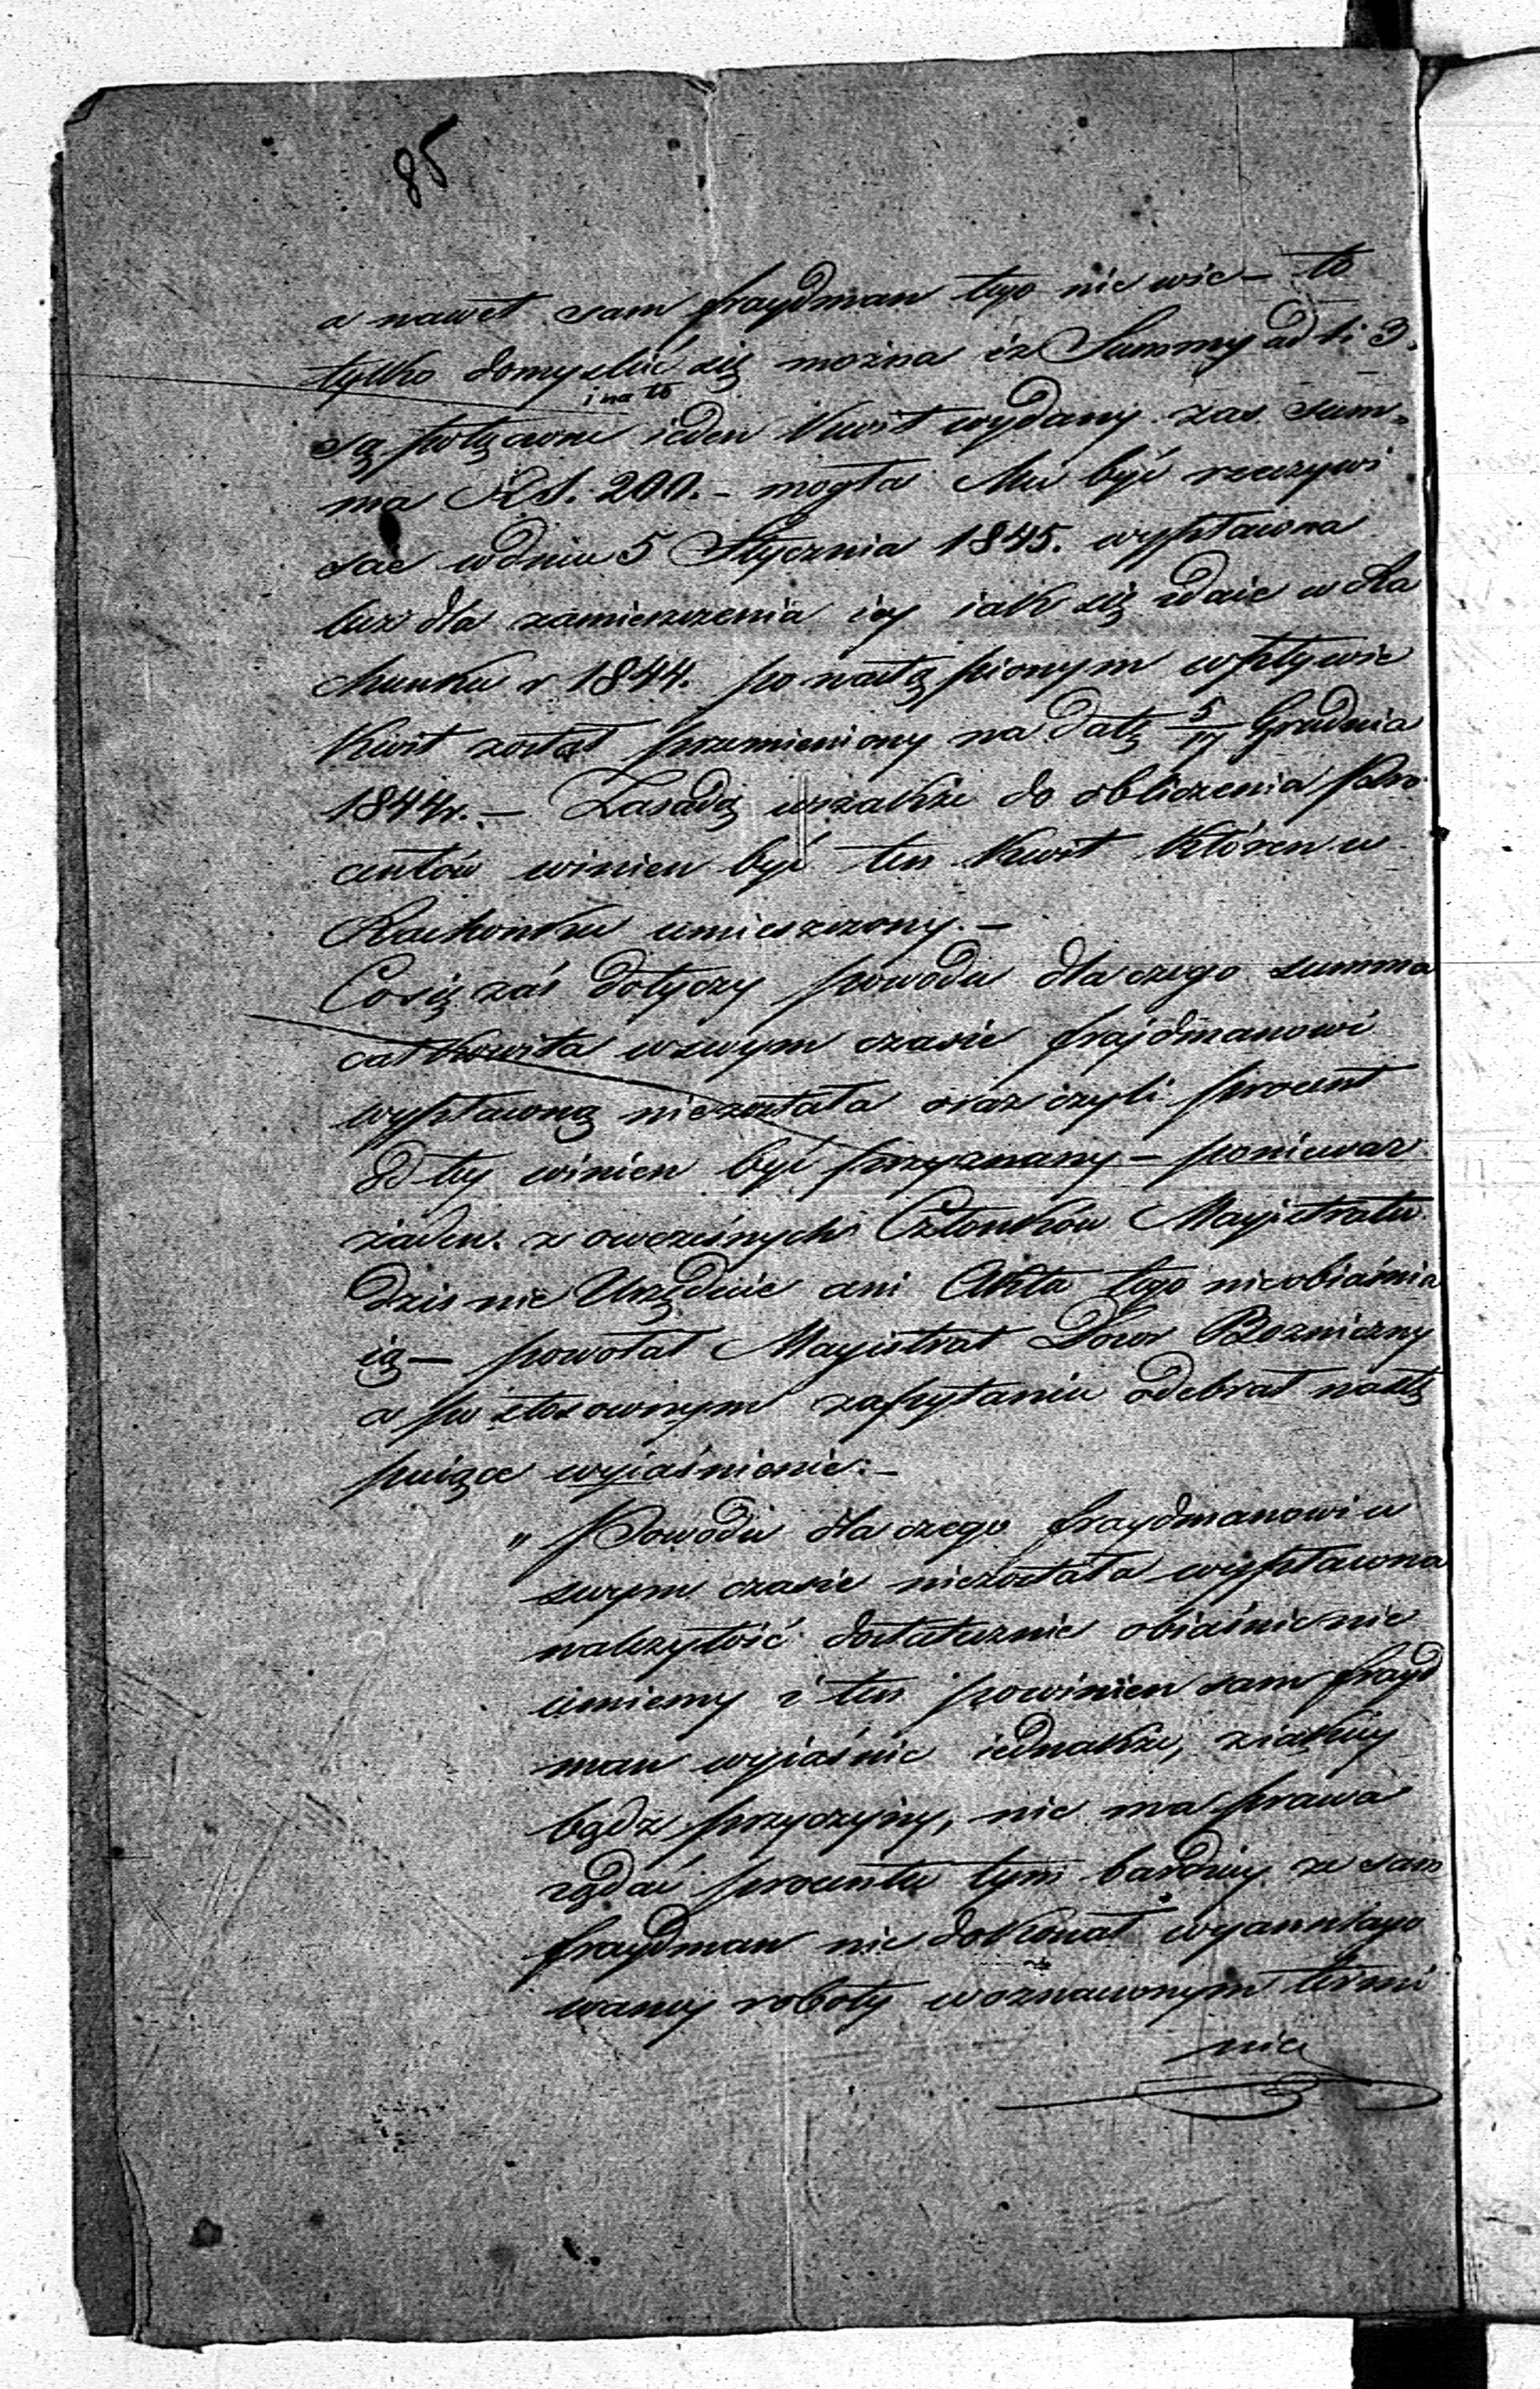 85
a nawet sam fraydman tego nie wie – to
tylko domyślić się można iż Summy ad 1 i 3.
i na to
są połączone ieden Kwit wydany. zas Sum-
ma RS. 200. – mogła Mu być rzeczywi
sce w dniu 5 Stycznia 1845. wypłacona
lecz dla zamieszczenia iey iak się zdaie w Ra
chunku r 1844. po nastąpionym wpływie
Kwit został przemieniony na datę 5/17 Grudnia
1844r. – Zasadą wszakże do obliczenia Pro
centów winien być ten Kwit któren w
Rachunku umieszczony. –
Co się zaś dotyczy powodu dla czego summa
całkowita w swym czasie frajdmanowi
wypłaconą niezostała oraz czyli procent
od tey winien być przyznany – ponieważ
żaden z owcześnych Członków Magistratu
dziś nie Urzęduie ani Akta tego nie obiaśnia
ią – powołał Magistrat Dozor Bozniczny
a po stosownym zapytaniu odebrał nastę
puiące wyiaśnienie: –
„ Powodu dla czego fraydmanowi w
swym czasie niezostała wypłacona
należytość dostatecznie obiaśnić nie
umiemy i ten powinien sam frayd
man wyiaśnić iednakże, z iakiey
bądź przyczyny, nie ma prawa
żądać procentu tym bardziey ze sam
fraydman nie dokonał wyanszlago
waney roboty w oznaczonym termi
nie